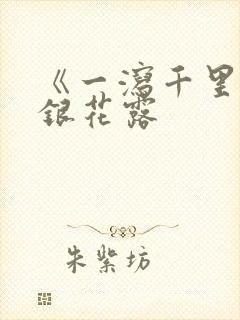 《一瀉千里
銀花露
朱紫坊